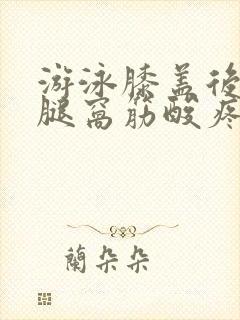 游泳膝盖後
腿窝筋酸疼
蘭朵朵